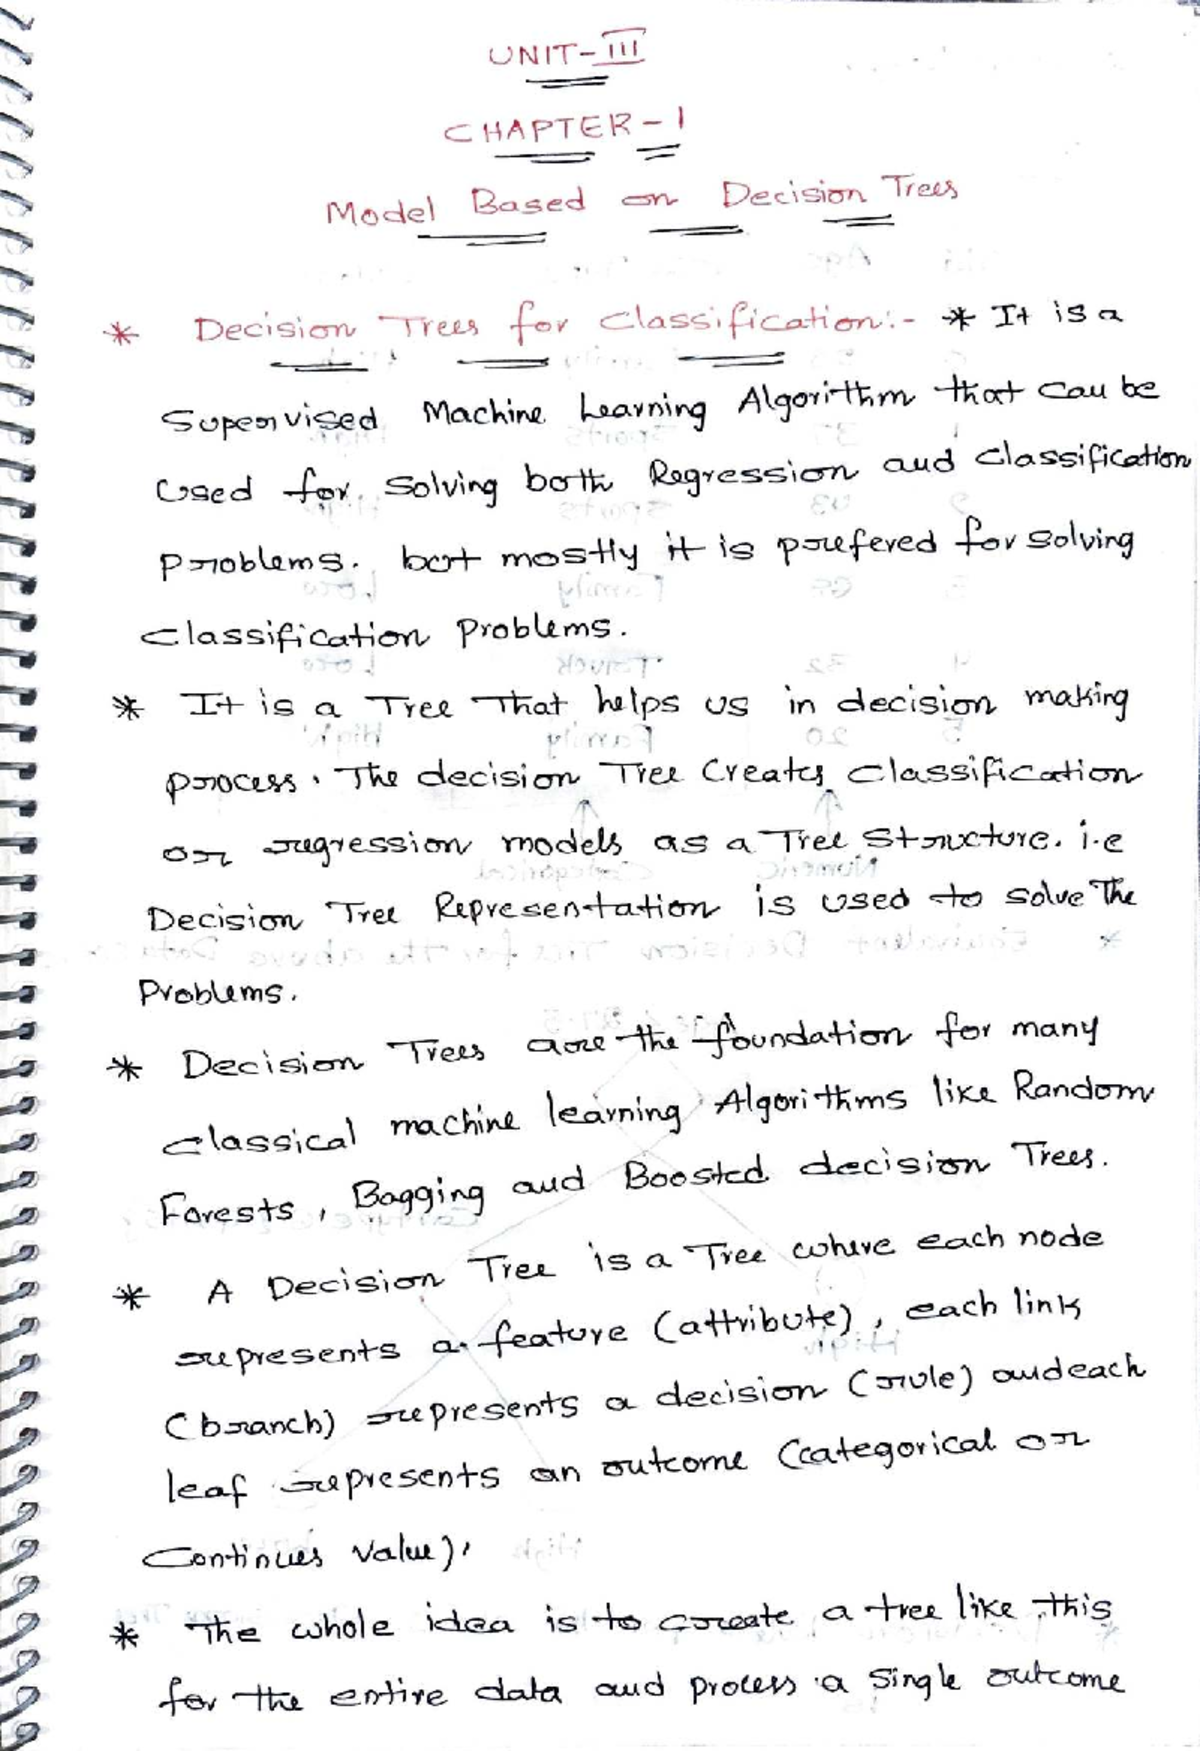 UNIT-III
CHAPTER-1
Model Based on Decision Trees
* Decision Trees for Classification:- * It is a
Supervised Machine Learning Algorithm that can be
used for solving both Regression and Classification
Problems. but mostly it is prefered for solving
Classification Problems.
* It is a Tree That helps us in decision making
process. The decision Tree Creates Classification
or regression models as a Tree Structure. i.e
Decision Tree Representation is used to solve The
Problems.
* Decision Trees are the foundation for many
classical machine learning Algorithms like Random
Forests, Bagging and Boosted decision Trees.
* A Decision Tree is a Tree where each node
represents a feature (attribute), each link
(branch) represents a decision (rule) and each
leaf represents an outcome (categorical or
Continues value).
* The whole idea is to create a tree like this
for the entire data and process a single outcome